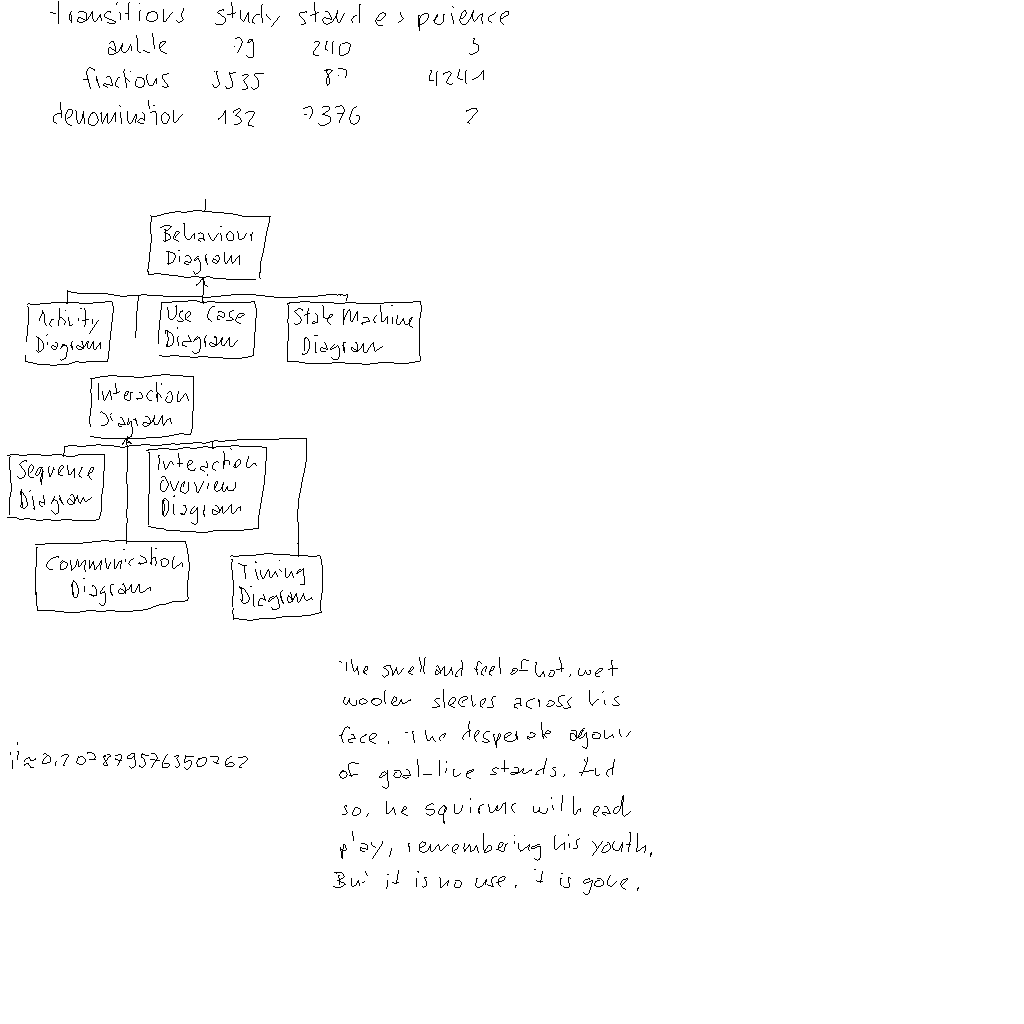 transitions study stand experience
ankle 79 240 3
fractions 3535 87 4241
denomination 132 7376 2
Behaviour
Diagram
Activity
Diagram
Use Case
Diagram
State Machine
Diagram
Interaction
Diagram
Sequence
Diagram
Interaction
Overview
Diagram
Communication
Diagram
Timing
Diagram
The smell and feel of hot, wet
woolen sleeves across his
face. The desperate agony
of goal-line stands. And
so, he squirms with each
play, remembering his youth.
But it is no use. it is gone.
iⁱ≈0,207879576350762